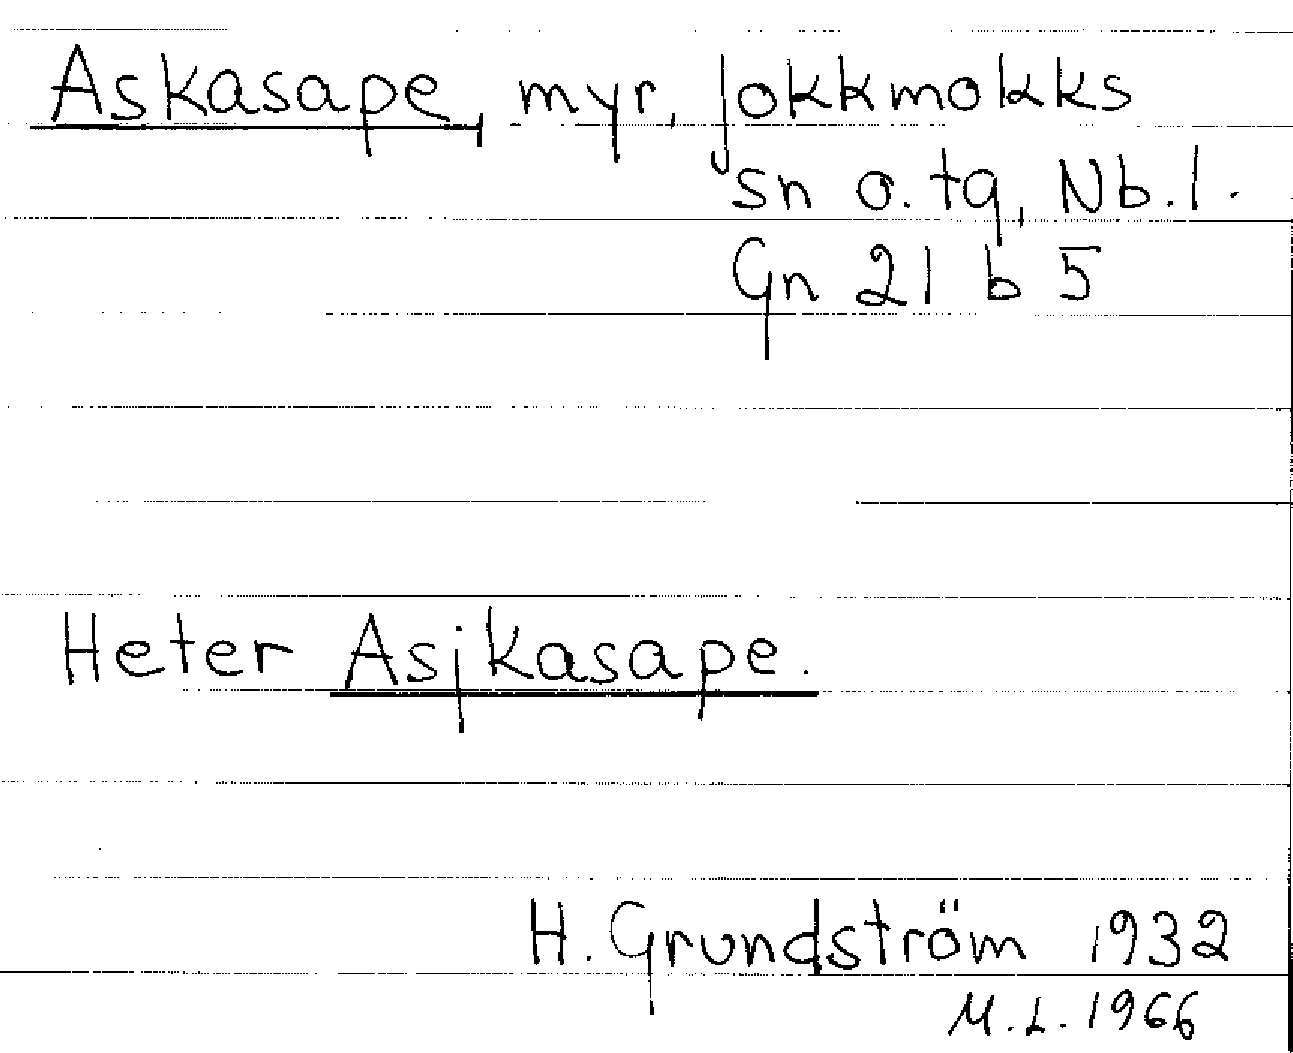 Askasape, myr, Jokkmokks
sn o. tg, Nb. l.
Gn 21 b 5
Heter Asjkasape.
H. Grundström 1932
M. L. 1966